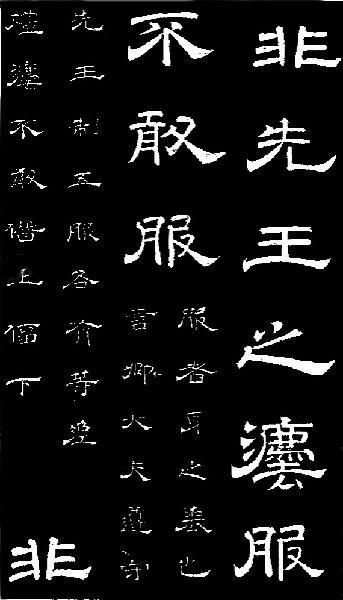 非先王之灋服
不敢服
服者身之表也
言卿大夫遵守
先王制五服各有等差
禮灋不敢僭上偪下
非